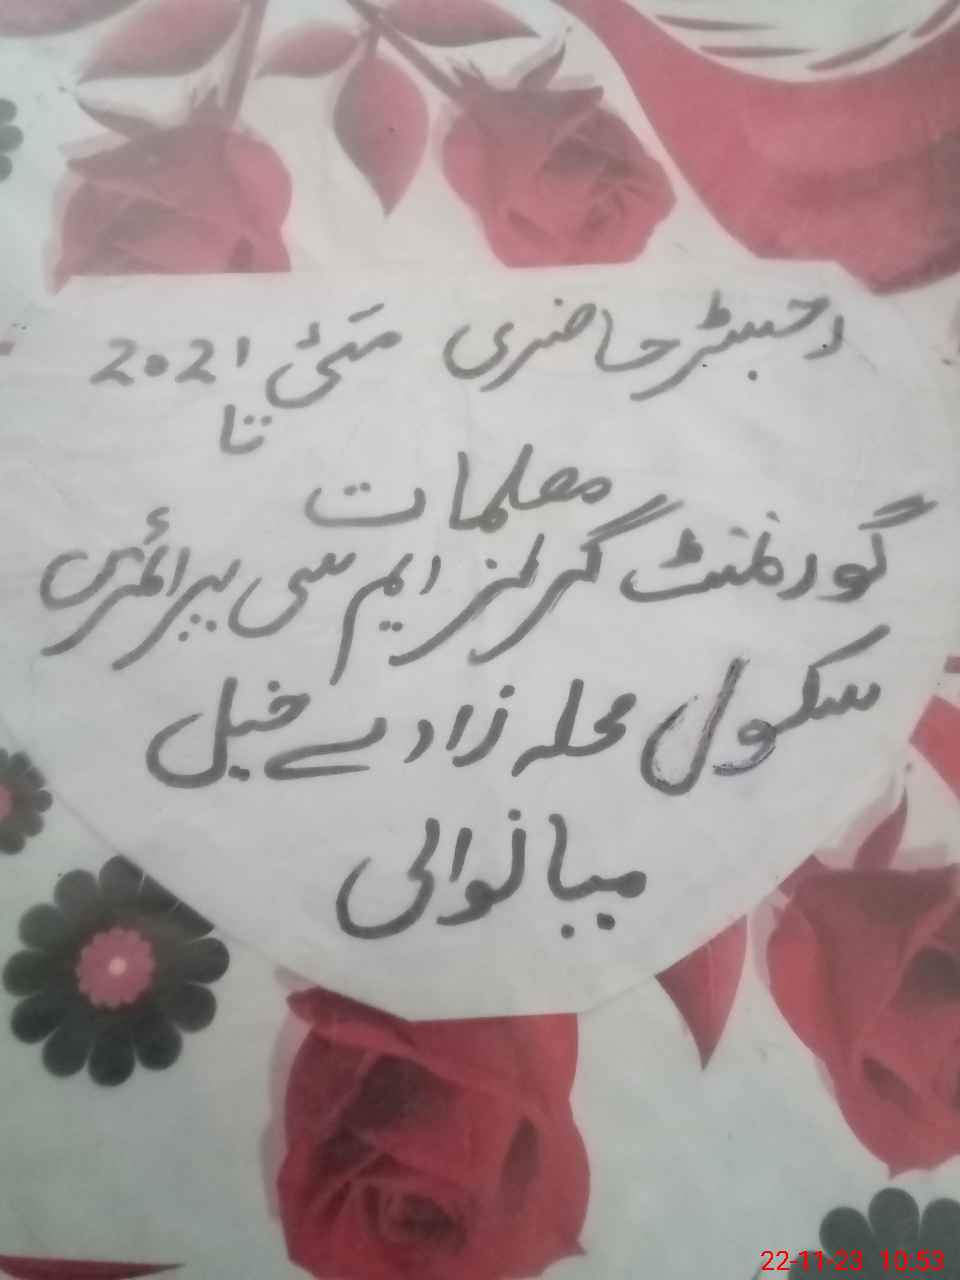 رجسٹر حاضری مئی 2021
تا
معلمات
گورنمنٹ گرلز ایم سی پرائمری
سکول محلہ زادے خیل
میانوالی
22-11-23 10:53